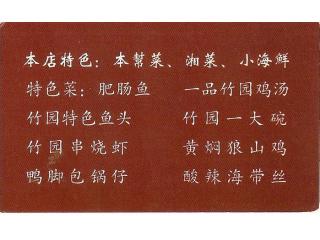 本店特色：本幫菜、湘菜、小海鲜
特色菜：肥肠鱼 一品竹园鸡汤
竹园特色鱼头 竹园一大碗
竹园串烧虾 黄焖狼山鸡
鸭脚包锅仔 酸辣海带丝